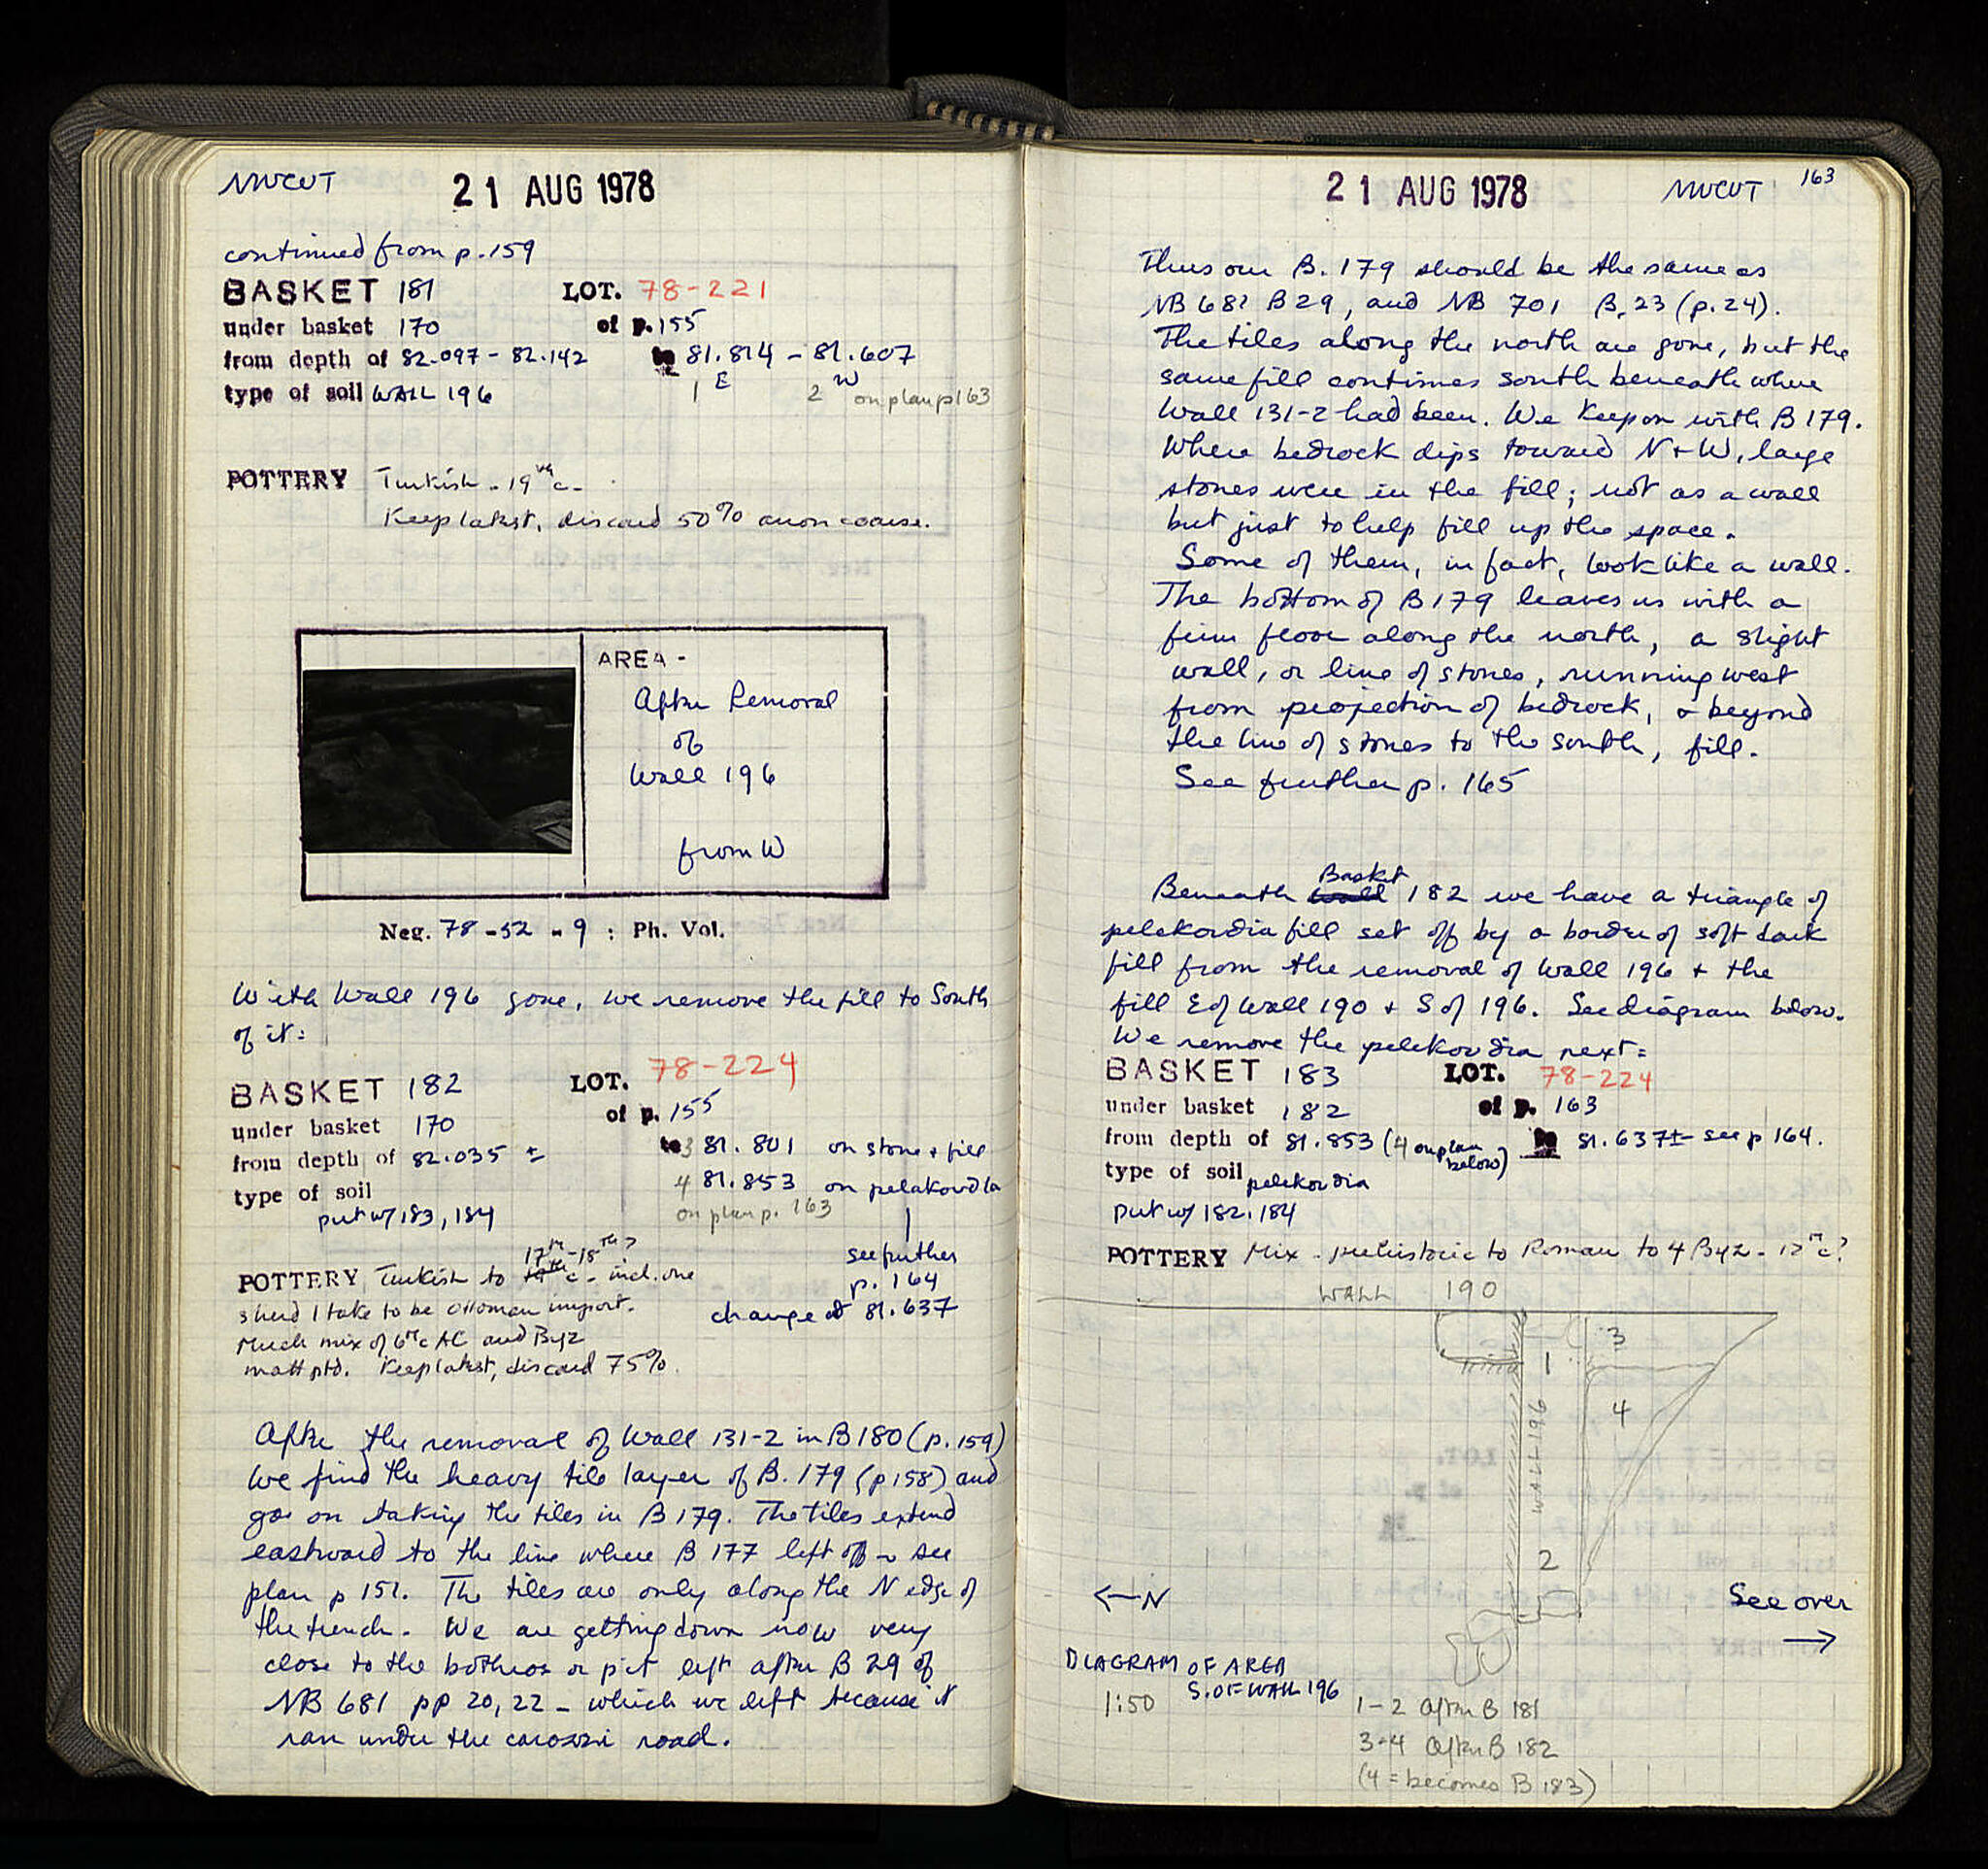 NWCUT
21 AUG 1978
continued from p. 159
BASKET 181 LOT. 78-221
under basket 170 of p. 155
from depth of 82.097 - 82.142 to 81.814 - 81.607
type of soil WALL 196 1 E 2 W on plan p 163
POTTERY Turkish - 19th c -
Keep latest, discard 50% anon coarse.
AREA -
After Removal
of
Wall 196
from W
Neg. 78-52-9 : Ph. Vol.
With Wall 196 gone, we remove the fill to South
of it:
BASKET 182 LOT. 78-224
under basket 170 of p. 155
from depth of 82.035 ± to 3 81.801 on stone + fill
type of soil 4 81.853 on pelakordia
put w/ 183, 184 on plan p. 163
see further
p. 164
change at 81.637
17th-18th?
POTTERY Turkish to 19th c - incl. one
sherd I take to be Ottoman import.
Much mix of 6th c AC and Byz
matt ptd. Keep latest, discard 75%.
After the removal of Wall 131-2 in B180 (p. 159)
We find the heavy tile layer of B. 179 (p 158) and
go on taking the tiles in B 179. The tiles extend
eastward to the line where B 177 left off - see
plan p 151. The tiles are only along the N edge of
the trench. We are getting down now very
close to the bothros or pit left after B 29 of
NB 681 pp 20, 22 - which we left because it
ran under the carozzi road.
21 AUG 1978
NWCUT 163
Thus our B. 179 should be the same as
NB 681 B29, and NB 701 B. 23 (p. 24).
The tiles along the north are gone, but the
same fill continues south beneath where
Wall 131-2 had been. We keep on with B 179.
Where bedrock dips toward N + W, large
stones were in the fill; not as a wall
but just to help fill up the space.
Some of them, in fact, look like a wall.
The bottom of B179 leaves us with a
firm floor along the north, a slight
wall, or line of stones, running west
from projection of bedrock, & beyond
the line of stones to the south, fill.
See further p. 165
Beneath wall Basket 182 we have a triangle of
pelekordia fill set off by a border of soft dark
fill from the removal of Wall 196 + the
fill E of Wall 190 + S of 196. See diagram below.
We remove the pelekordia next:
BASKET 183 LOT. 78-224
under basket 182 of p. 163
from depth of 81.853 (4 on plan below) to 81.637± see p 164.
type of soil pelekordia
put w/ 182, 184
POTTERY Mix - prehistoric to Roman to 4 Byz - 12th c?
WALL 190
3
1
4
WALL 196
2
← N
See over
→
DIAGRAM OF AREA
S. OF WALL 196
1:50
1-2 After B 181
3-4 After B 182
(4 = becomes B 183)